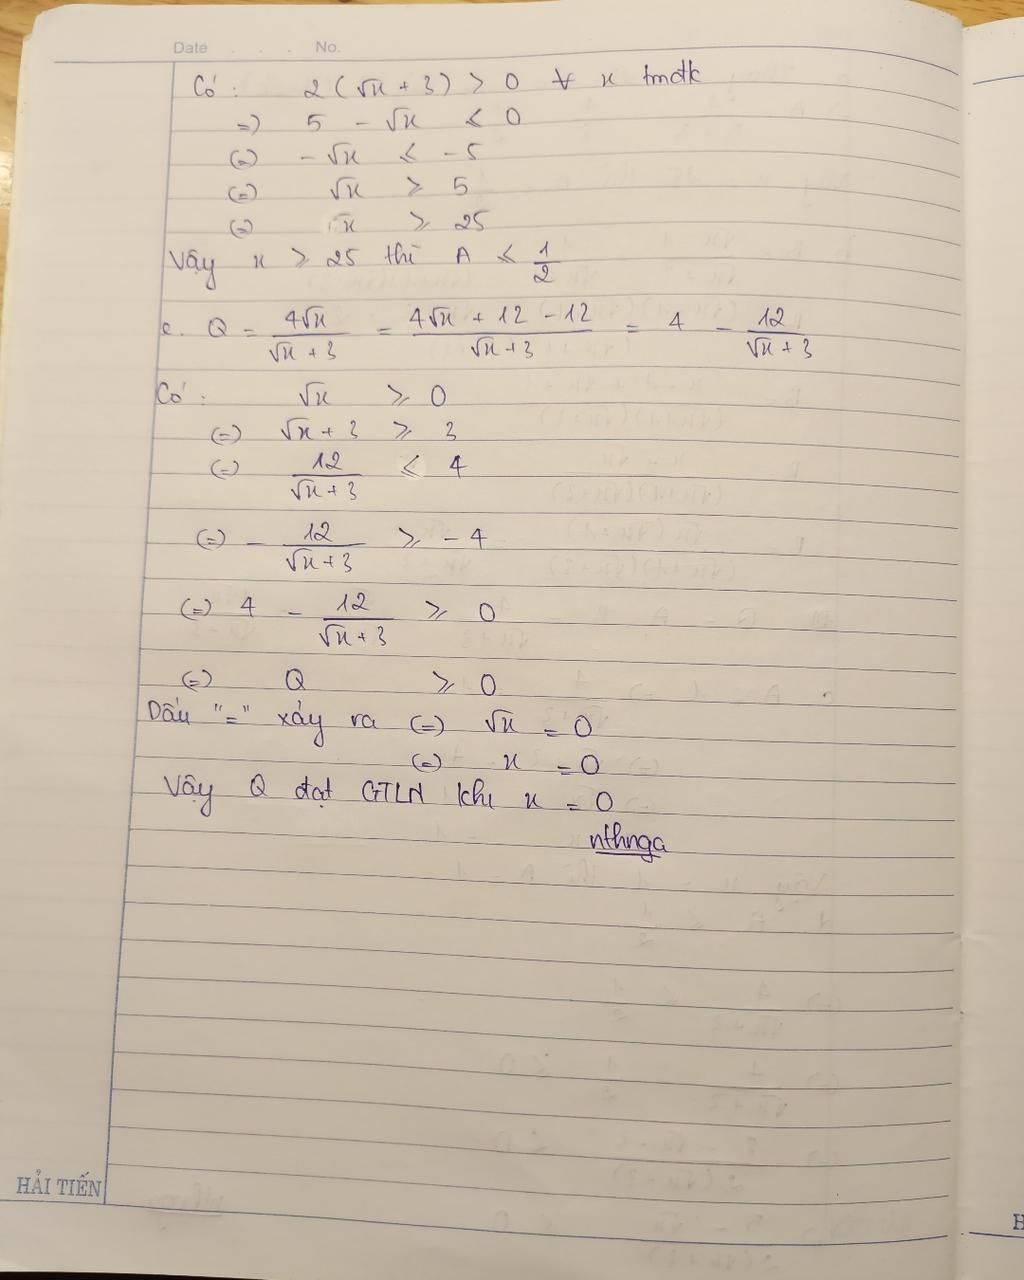 Date . . . No.
Có: 2(√x + 3) > 0 ∀ x tmđk
=) 5 - √x ≤ 0
(=) -√x ≤ -5
(=) √x ≥ 5
(=) x ≥ 25
Vậy x ≥ 25 thì A ≤ 1/2
e. Q = 4√x/(√x + 3) = (4√x + 12 - 12)/(√x + 3) = 4 - 12/(√x + 3)
Có: √x ≥ 0
(=) √x + 3 ≥ 3
(=) 12/(√x + 3) ≤ 4
(=) - 12/(√x + 3) ≥ -4
(=) 4 - 12/(√x + 3) ≥ 0
(=) Q ≥ 0
Dấu "=" xảy ra (=) √x = 0
(=) x = 0
Vậy Q đạt GTLN khi x = 0
nthnga
HẢI TIẾN